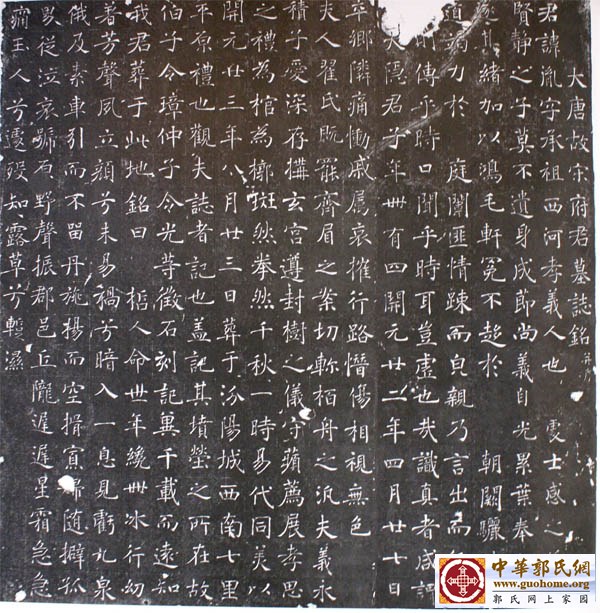 大唐故宋府君墓誌銘并序
君諱胤字承祖西河孝義人也
賢静之子莫不遺身成節尚義自光累葉奉
其緒加以鴻毛軒冕不趍於 朝闕驪
竭力於 庭闈匪情踈而自親乃言出而
時傳乎時口聞乎時耳豈虛也哉識真者咸謂
大隱君子年卌有四開元廿二年四月廿七日
卒鄉隣痛慟戚属哀摧行路憯傷相視無色
夫人翟氏既罷齊眉之案切軫栢舟之汎夫義永
積子愛深存搆玄宫遵封樹之儀守蘋薦展孝思
之禮為棺為槨斑然拳然千秋一時易代同美以
開元廿三年八月廿三日葬于汾陽城西南七里
平原禮也觀夫誌者記也盖記其墳塋之所在故
伯子令璋仲子令光等徵石刻記冀千載而遠知
我君葬于此地銘曰 哲人命世年纔卌冰行幼
著芳聲夙立顔兮未易禍兮暗入一息見虧九泉
俄及素車引而不留丹旐揚而空揖賓歸随擗孤
从泣哀號原野聲振郡邑丘隴遲遲星霜急急
主人兮還殁知露草兮蹔濕
中華郭氏網
www.guohome.org
郭氏网上家园